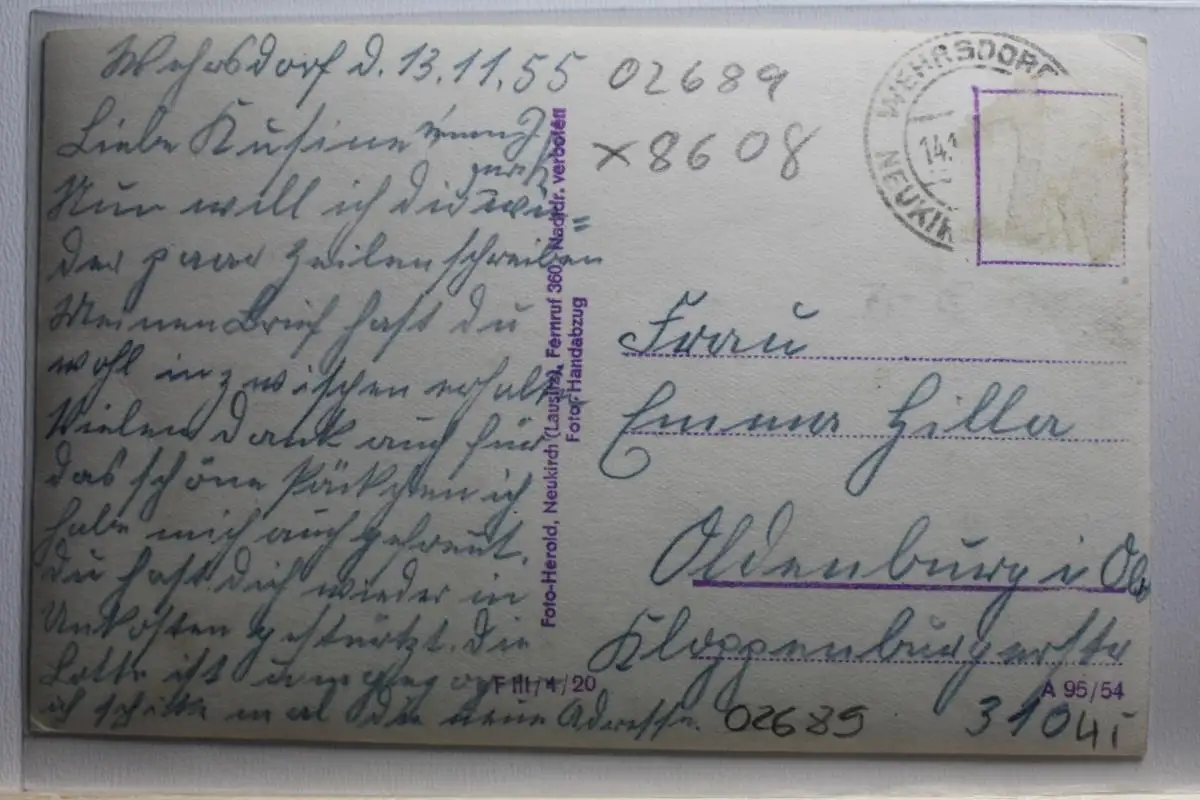 Wehrsdorf d. 13.11.55
Liebe Kusine
Nur will ich dir wie=
der paar Zeilen schreiben
Meinen Brief hast du
wohl inzwischen erhalten
Vielen Dank auch für
das schöne Päckchen ich
habe mich auch gefreut.
Du hast dich wieder in
Unkosten gestürzt. Die
Lotte ist umgezogen
ich schicke mal die neue Adresse.
02689
×8608
WEHRSDORF
NEUKIR
14.1
Foto-Herold, Neukirch (Lausitz), Fernruf 360 Nachdr. verboten
Foto-Handabzug
Frau
Emma Hilla
Oldenburg i Olb
Kloppenburgerstr
F III/4/20
A 95/54
02689
31041